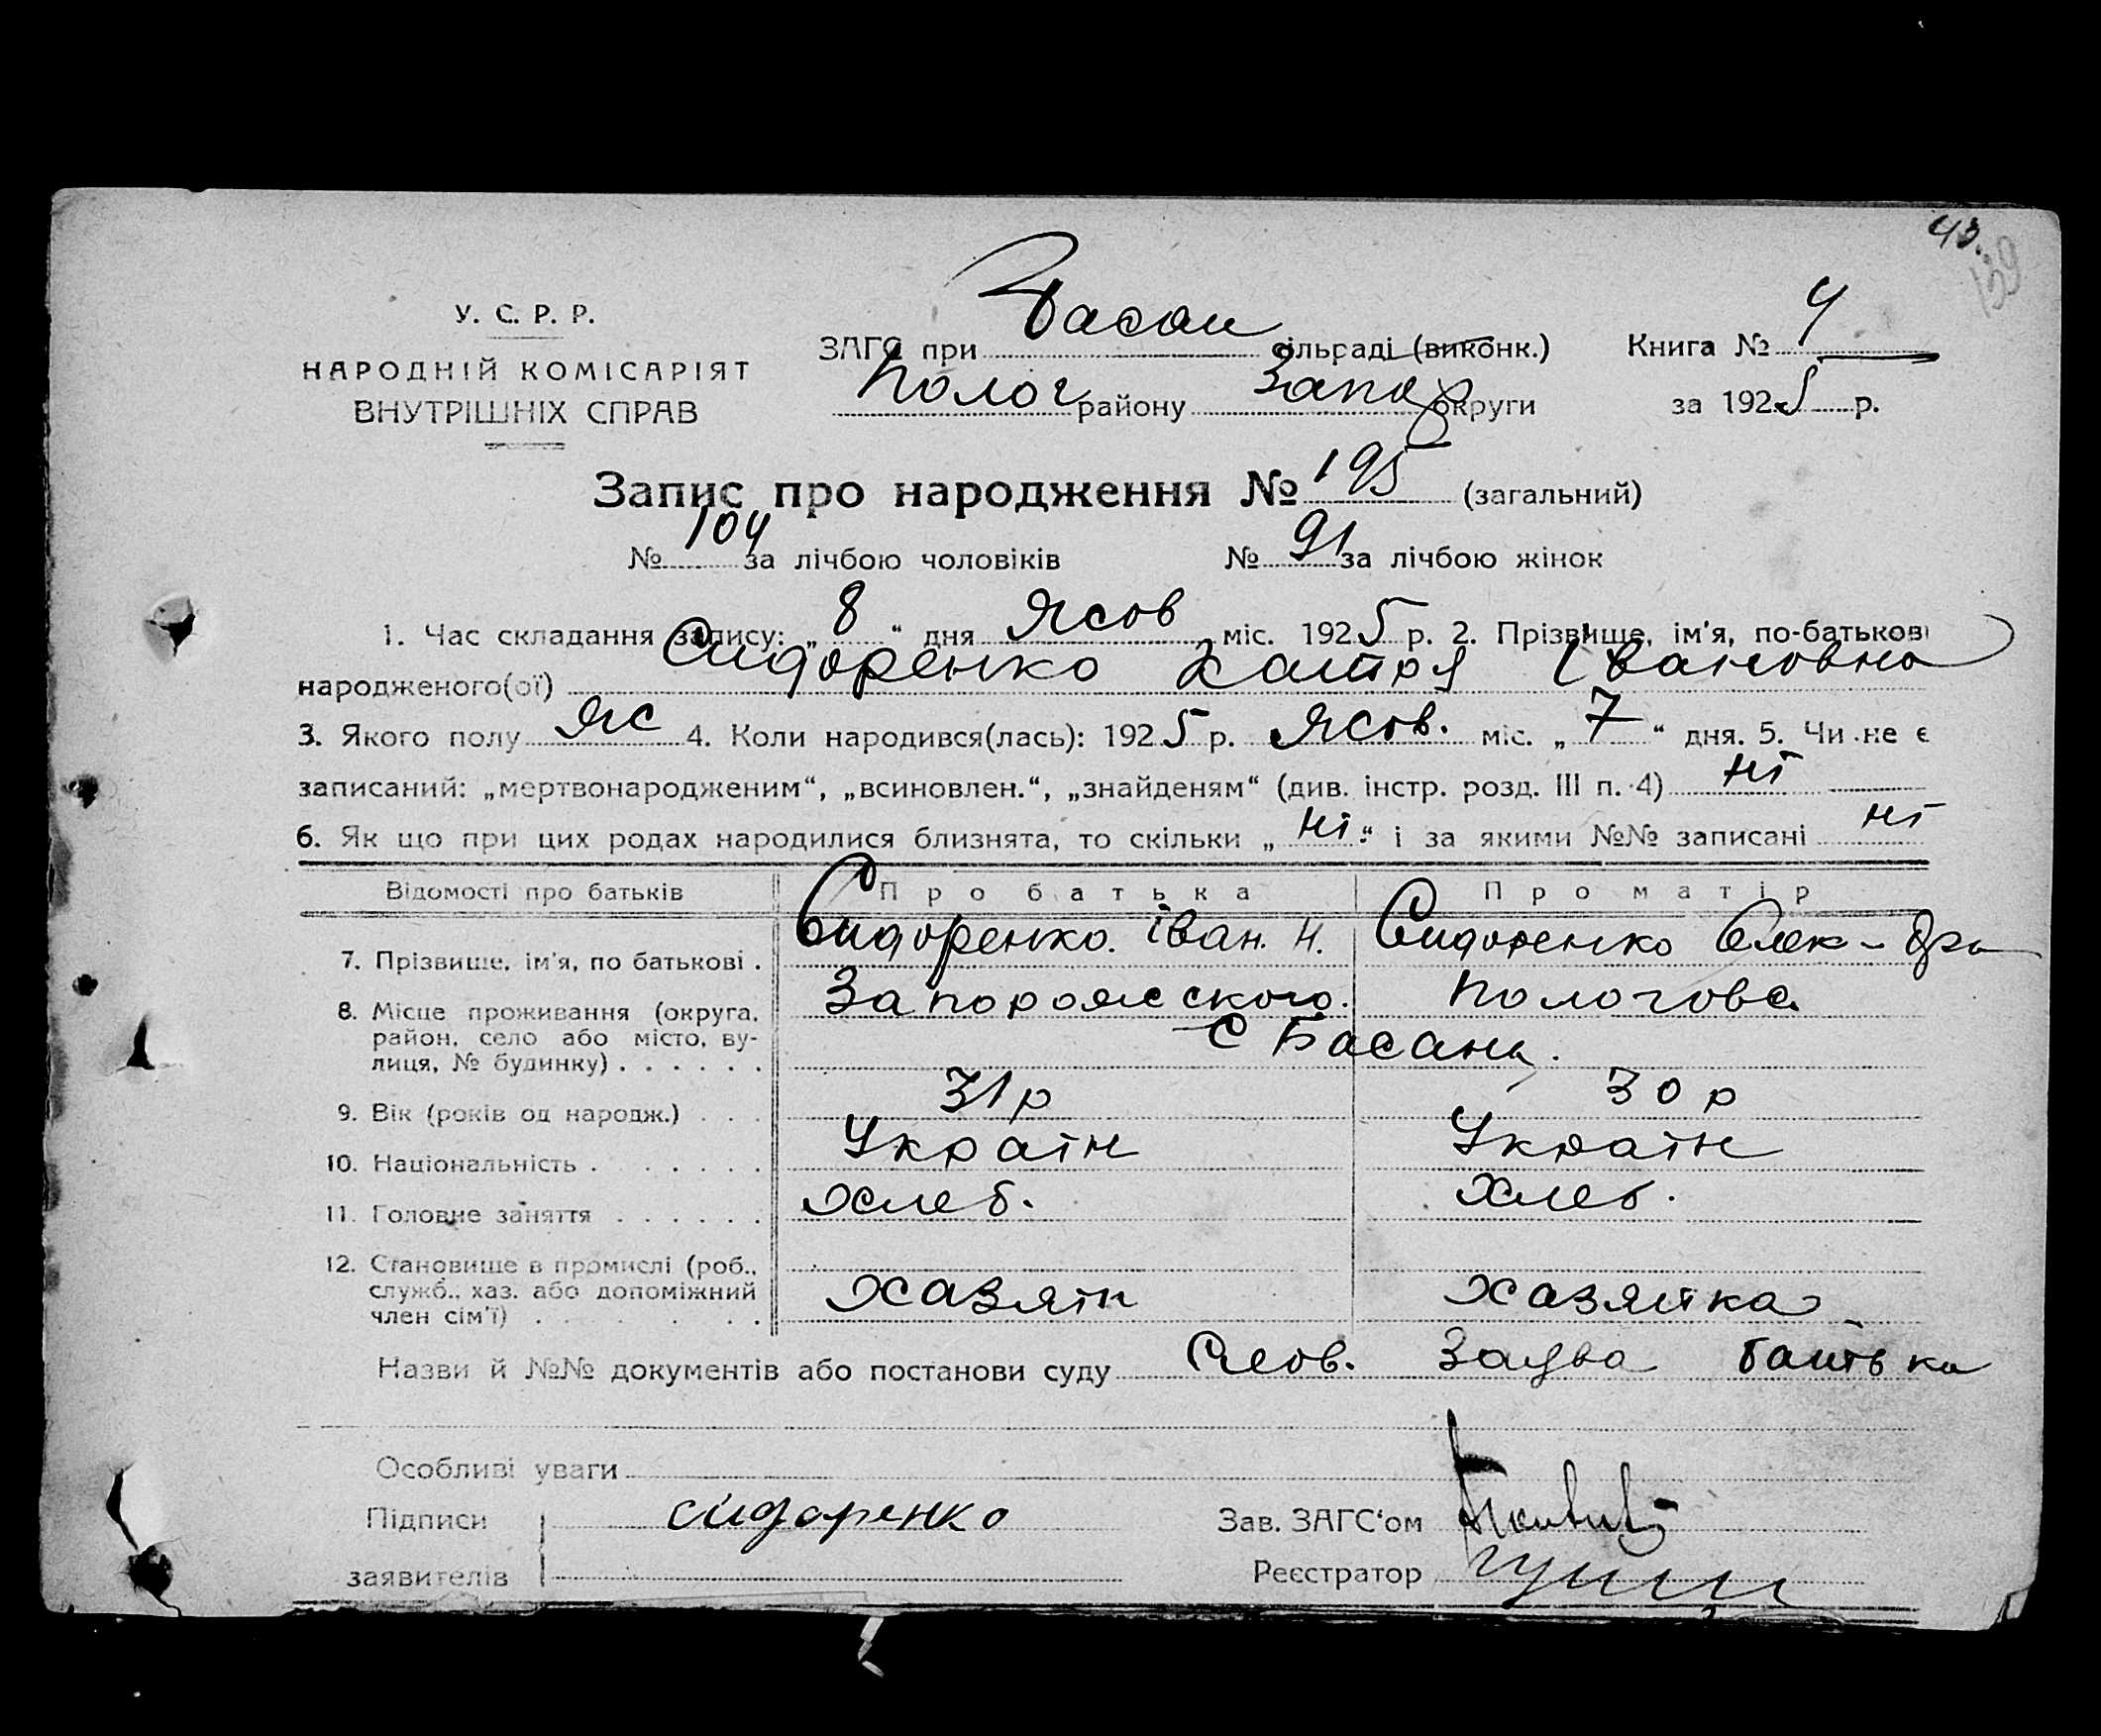 43.
139
У. С. Р. Р.
НАРОДНІЙ КОМІСАРІЯТ
ВНУТРІШНІХ СПРАВ
ЗАГС при Басан сільраді (виконк.) Книга № 4
Полог району Запор округи за 1925 р.
Запис про народження № 195 (загальний)
№ 104 за лічбою чоловіків № 91 за лічбою жінок
1. Час складання запису: „ 8 “ дня Жов міс. 1925 р. 2. Прізвище, ім'я, по-батькові
народженого(ої) Сидоренко Катря Івановна
3. Якого полу Ж 4. Коли народився(лась): 1925 р. Жов. міс. „ 7 “ дня. 5. Чи не є
записаний: „мертвонародженим“, „всиновлен.“, „знайденям“ (див. інстр. розд. III п. 4) ні
6. Як що при цих родах народилися близнята, то скільки „ ні “ і за якими №№ записані ні
Відомості про батьків Про батька Про матір
7. Прізвище, ім'я, по батькові . Сидоренко. Іван. Н. Сидоренко Олек-дра
8. Місце проживання (округа, Запорожского. Пологова
район, село або місто, ву- С Басань.
лиця, № будинку) . . . . . .
9. Вік (років од народж.) . . . 31 р 30 р
10. Національність . . . . . . . Україн Україн
11. Головне заняття . . . . . . Хлеб. Хлеб.
12. Становище в промислі (роб.,
служб., хаз. або допоміжний Хазяїн Хазяйка
член сім'ї) . . . . . . .
Назви й №№ документів або постанови суду Слов. Заява батька
Особливі уваги
Підписи сидоренко Зав. ЗАГС'ом
заявителів Реєстратор